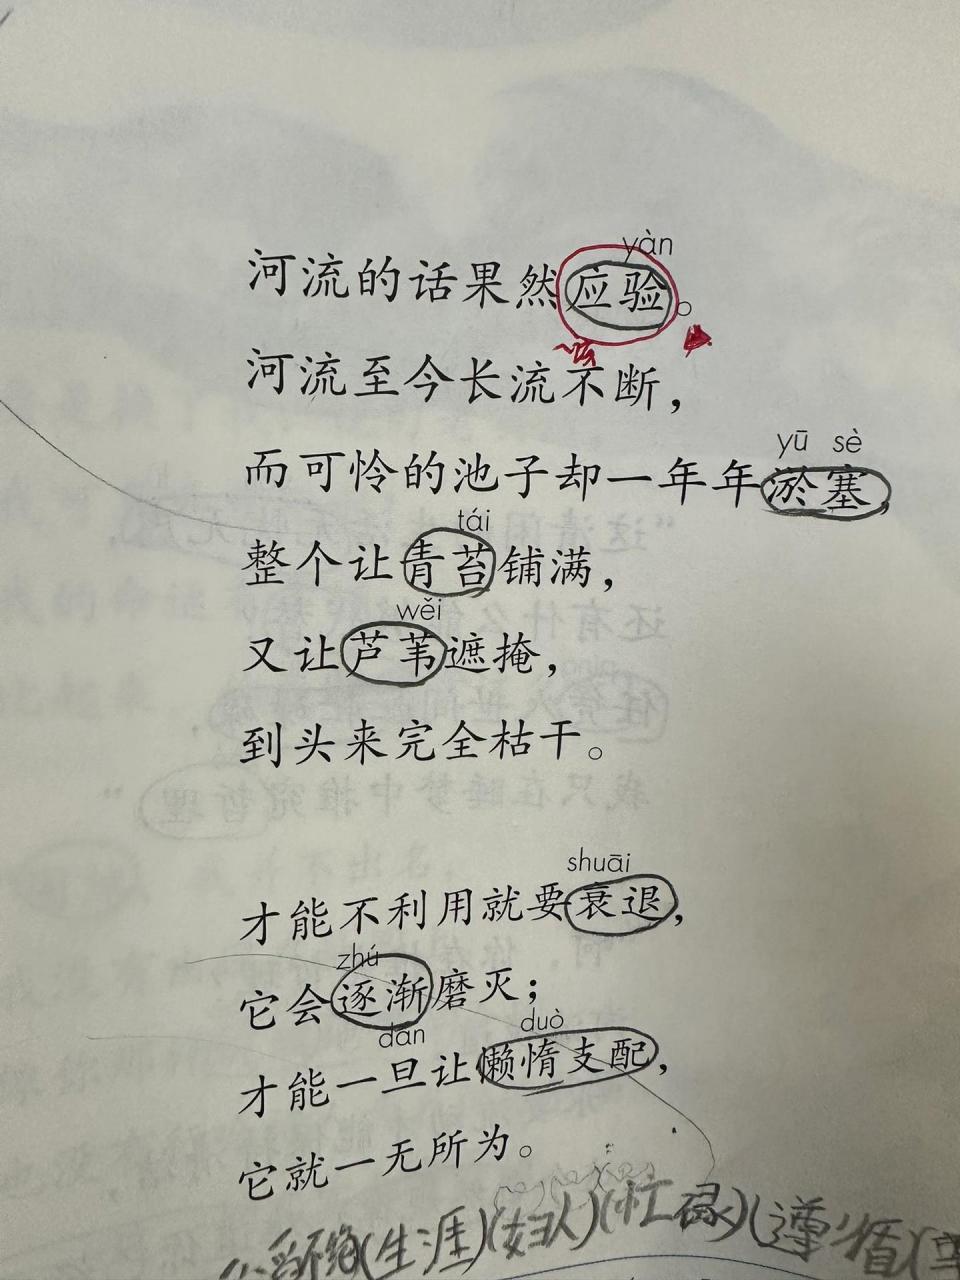 yàn
河流的话果然应验。
河流至今长流不断，
yū sè
而可怜的池子却一年年淤塞，
tái
整个让青苔铺满，
wěi
又让芦苇遮掩，
到头来完全枯干。
shuāi
才能不利用就要衰退，
zhú
它会逐渐磨灭；
dàn duò
才能一旦让懒惰支配，
它就一无所为。
(生涯)(妇人)(忙碌)(遵循)(